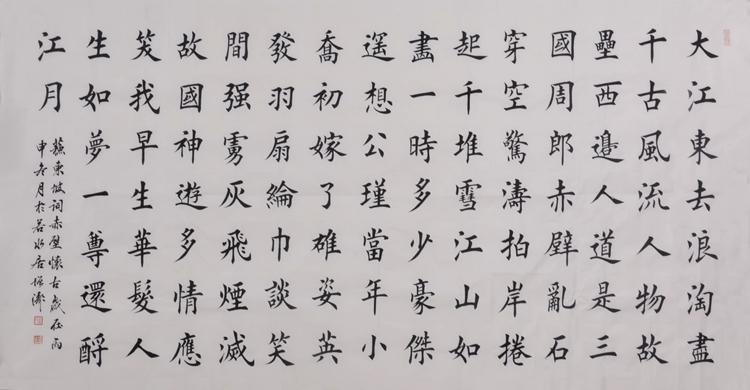 大江東去浪淘盡
千古風流人物故
壘西邉人道是三
國周郎赤壁亂石
穿空驚濤拍岸捲
起千堆雪江山如
畫一時多少豪傑
遥想公瑾當年小
喬初嫁了雄姿英
發羽扇綸巾談笑
間强虜灰飛煙滅
故國神遊多情應
笑我早生華髮人
生如夢一尊還酹
江月
蘇東坡詞赤壁懷古歲在丙
申冬月於若水居振濤